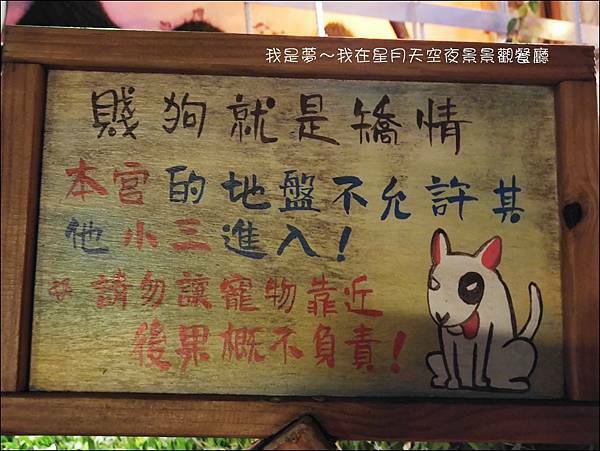 我是夢～我在星月天空夜景景觀餐廳
賤狗就是矯情
本宮的地盤不允許其
他小三進入！
※請勿讓寵物靠近
後果概不負責！